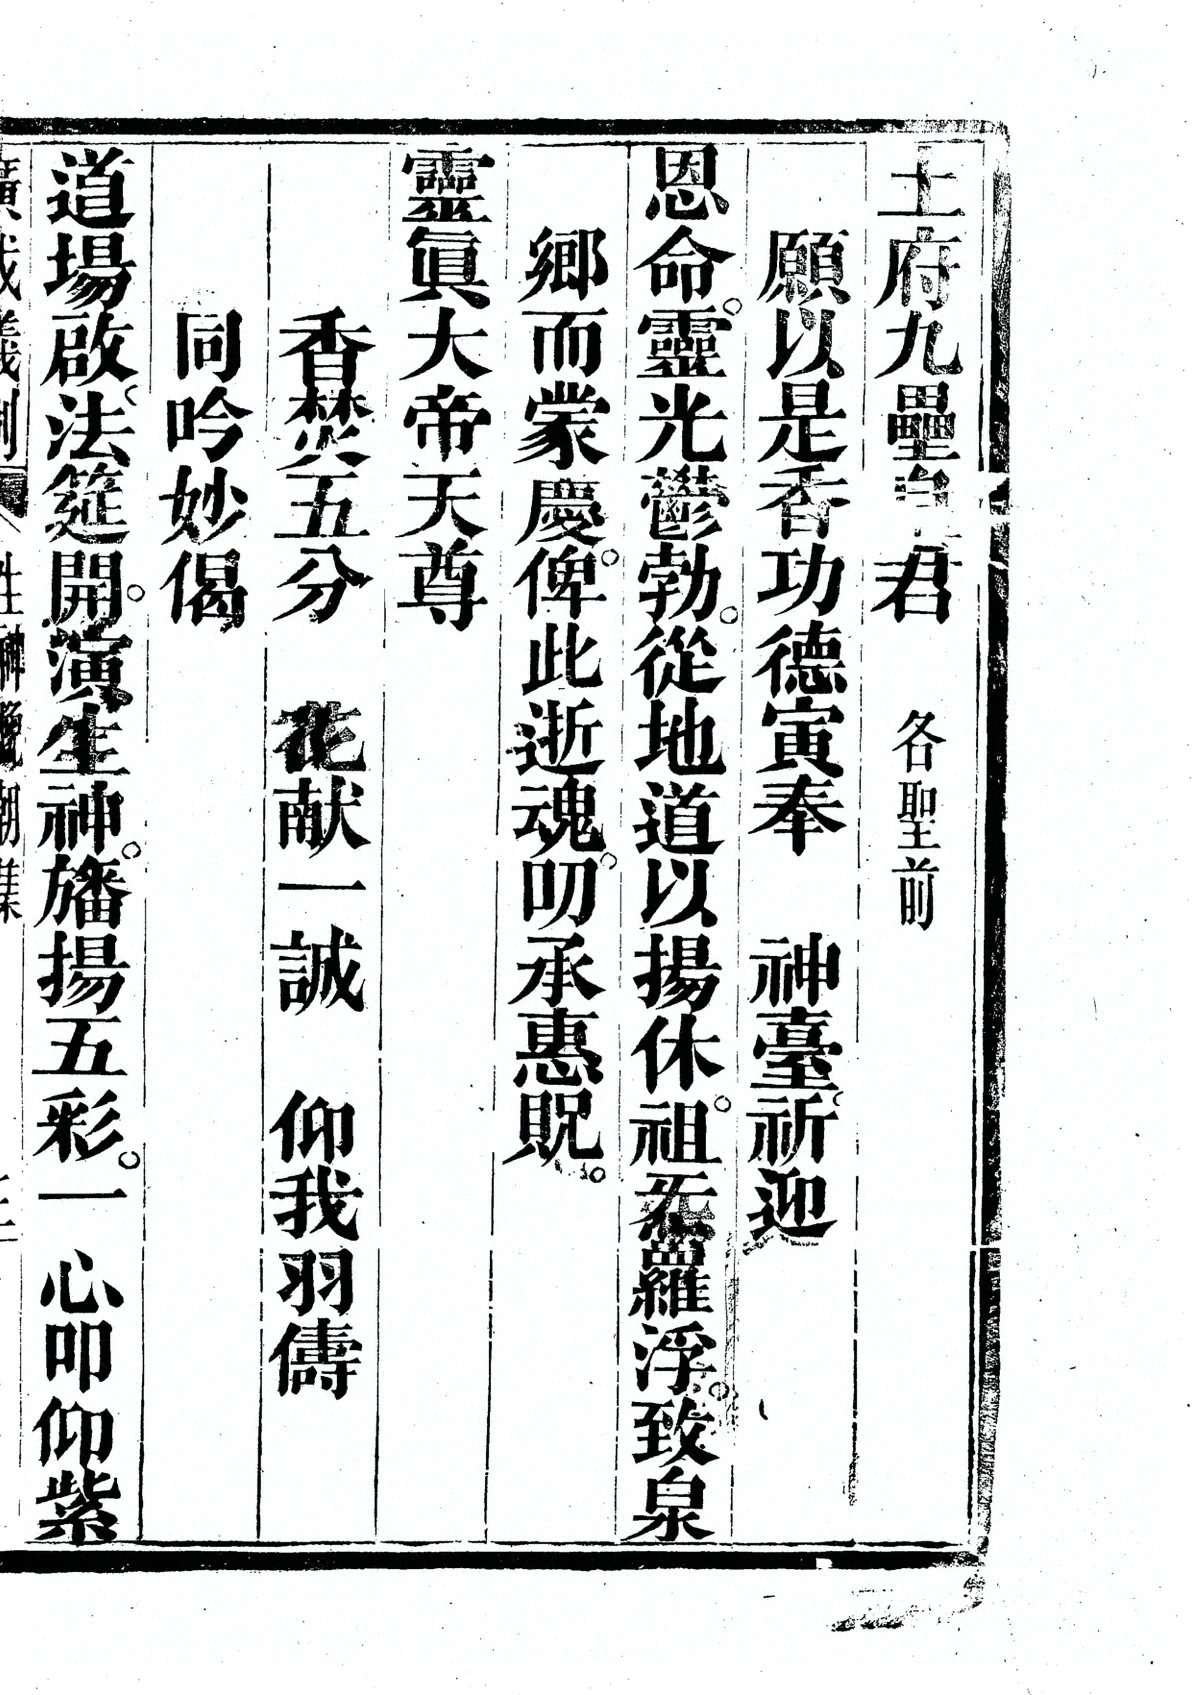 土府九壘皇君　各聖前
願以是香功德寅奉　神臺祈迎
恩命。靈光鬱勃。從地道以揚休。祖炁羅浮。致泉
鄉而蒙慶。俾此逝魂。叨承惠貺。
靈眞大帝天尊
香焚五分　花献一誠　仰我羽儔
同吟妙偈
道場啟。法筵開。演生神。旛揚五彩。一心叩仰紫
廣成儀制　生神晚朝集